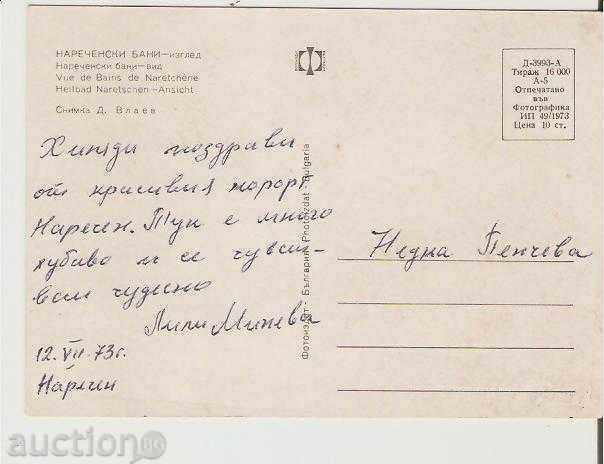 НАРЕЧЕНСКИ БАНИ—изглед
Нареченски бани—вид
Vue de Bains de Naretchène
Heilbad Naretschen—Ansicht
Снимка Д. Влаев
Д-3993-А
Тираж 16 000
А-5
Отпечатано
във
Фотографика
ИП 49/1973
Цена 10 ст.
Хиляди поздрави
от красивия курорт
Наречен. Тук е много
хубаво и се чувст-
вам чудесно
Лили Минева
12.VII.73г.
Наречен
Фотоиздат - България Photoizdat - Bulgaria
Недка Пенчева
auction BG